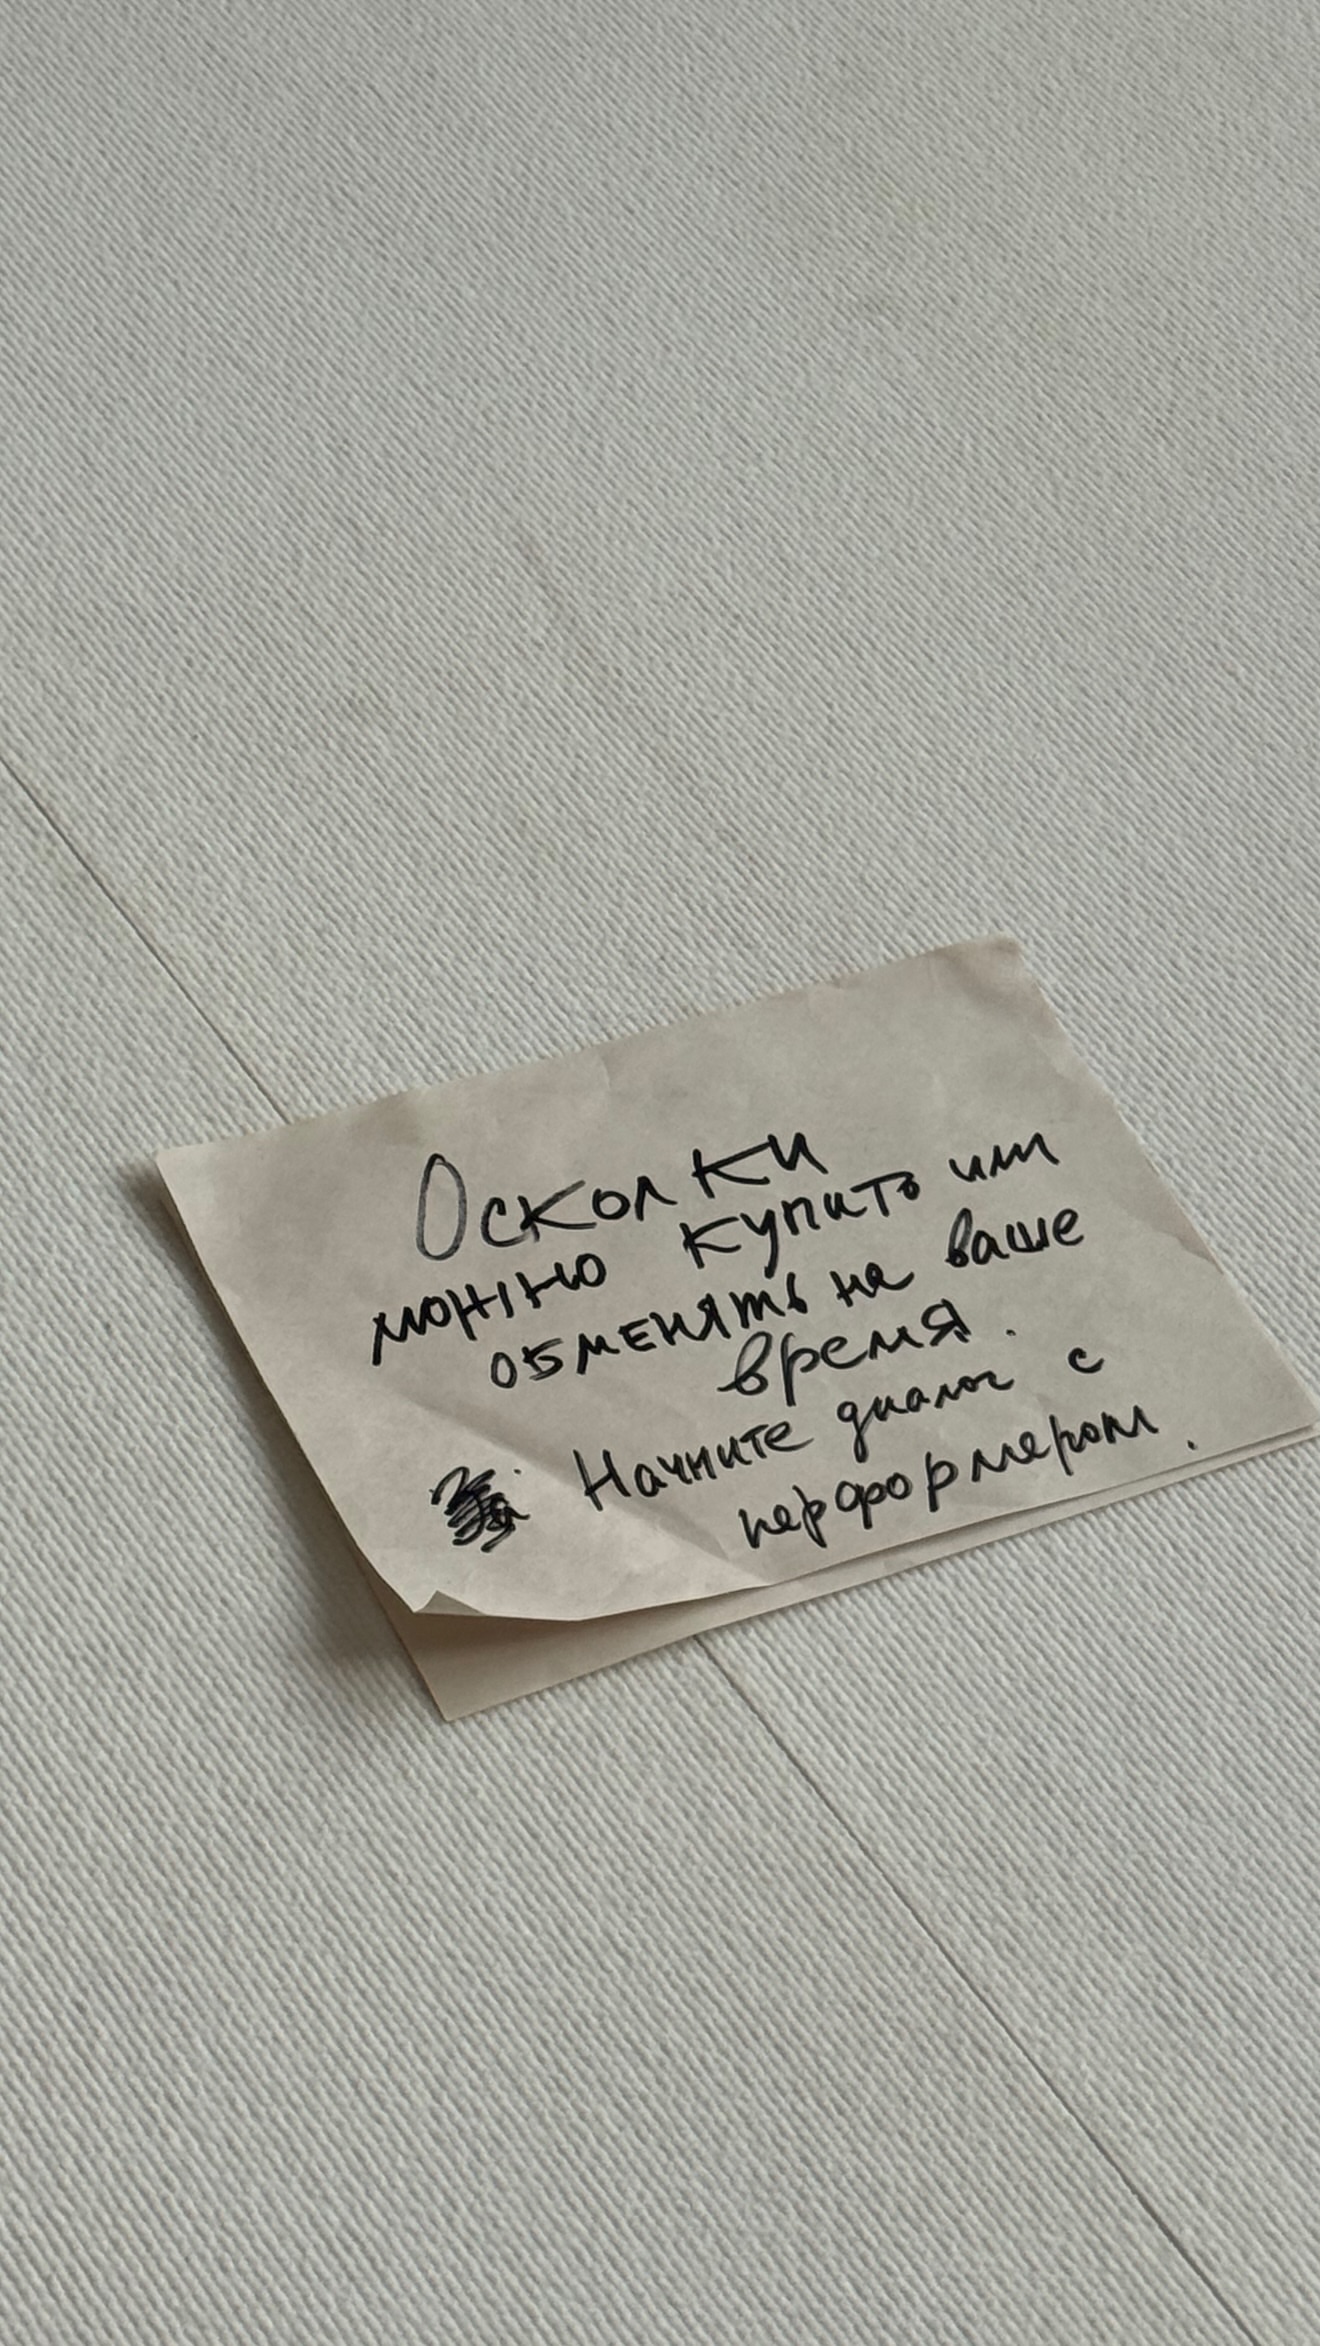 Осколки
можно купить или
обменять на ваше
время.
Начните диалог с
перформером.